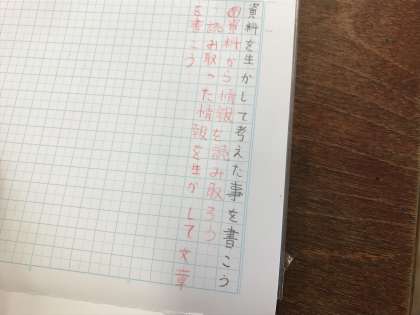 資料を生かして考えた事を書こう
め資料から情報を読み取ろう
読み取った情報を生かして文章
を書こう